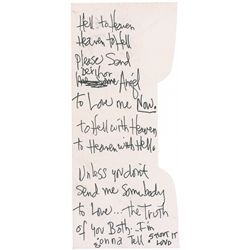 Hell to Heaven
Heaven to Hell
Please Send
to Love me Now.
to Hell with Heaven
to Heaven with Hell.
Unless you don't
Send me Somebody
to Love... The Truth
of you Both. I'm
gonna Tell SHOUT IT
LOUD